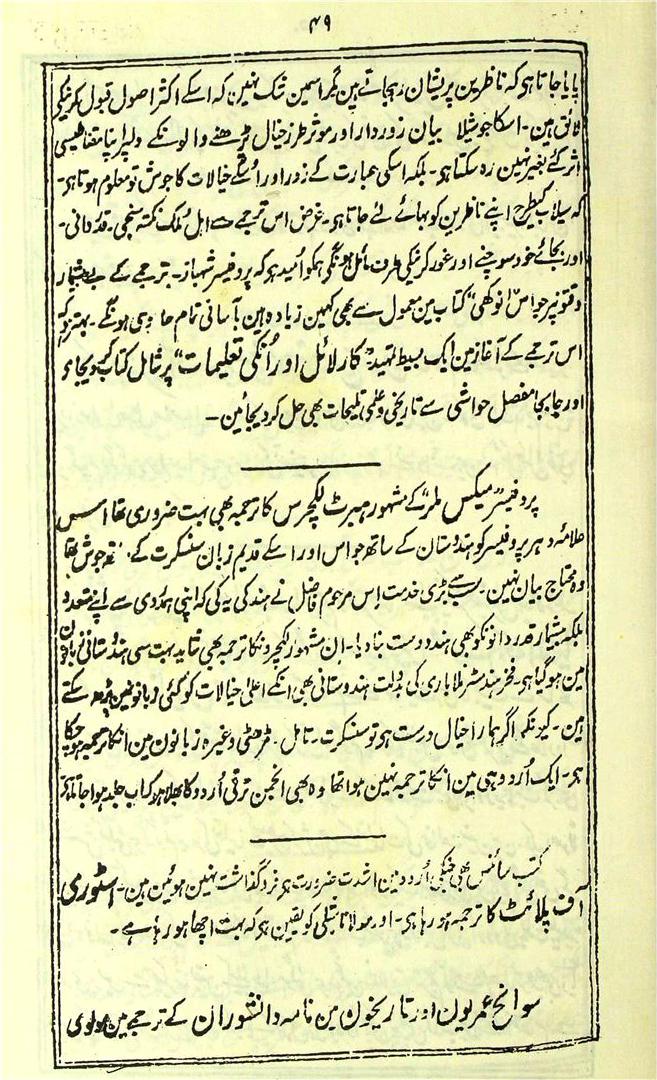 ۴۹
پایا جاتا ہو کہ ناظرین پریشان رہجاتے ہین مگر اسمین شک نہین کہ اسکے اکثر اصول قبول کرنیکی
لائق ہین۔ اسکا جوشیلا بیان زوردار اور موثر طرز خیال پڑھنے والونکے دلپر اپنا مقناطیسی
اثر کئے بغیر نہین رہ سکتا ہو۔ بلکہ اسکی عبارت کے زور اور اُسکے خیالات کا جوش تو معلوم ہوتا ہو۔
کہ سیلاب کیطرح اپنے ناظرین کو بہائے لئے جاتا ہو۔ غرض اس ترجمے سے اہل مُلک نکتہ سنجی۔ قدردانی۔
اور بجائے خود سوچنے اور غور کرنیکی طرف مائل ہونگی ہمکو اُمید ہو کہ پروفیسر شہباز۔ ترجمے کے بیشمار
دقتونپر جو اس "انوکھی" کتاب مین معمول سے بھی کہین زیادہ ہین بآسانی تمام حاوی ہونگے۔ بہتر ہو کہ
اس ترجمے کے آغاز مین ایک بسیط تمہید "کارلائل اور اُنکی تعلیمات" پر شامل کتاب کیجائے
اور جابجا مفصل حواشی سے تاریخی و علمی تلمیحات بھی حل کر دیجائین۔
پروفیسر "میکس ملر" کے مشہور ہبرٹ لکچرس کا ترجمہ بھی بہت ضروری تھا اس
علامۂ دہر پروفیسر کو ہندوستان کے ساتھ جو اس اور اسکے قدیم زبان سنسکرت کے جوش تھا
وہ محتاج بیان نہین۔ سب سے بڑی خدمت اِس مرحوم فاضل نے ہند کی یہ کی کہ اپنی ہمدردی سے اپنے متعدد
بلکہ بیشمار قدر دانونکو بھی ہند دوست بنا دیا۔ ان مشہور لکچرونکا ترجمہ بھی شاید بہت سی ہندُستانی زبانون
مین ہو گیا ہو۔ فخر ہند مسٹر ملاباری کی بدولت ہندوستانی بھی انکے اعلیٰ خیالات کو کئی زبانونمین پڑھ سکتے
ہین۔ کیونکہ اگر ہمارا خیال درست ہو تو سنسکرت۔ تامل۔ مرہٹی وغیرہ زبانون مین انکا ترجمہ ہو چکا
ہو۔ ایک اُردو ہی مین انکا ترجمہ نہین ہوا تھا وہ بھی انجمن ترقی اُردو کا بھلا ہو کہ اب جلد ہوا جاتا ہو۔
کتب سائنس بھی جنکی اُردو مین اشدت ضرورت ہو فروگذاشت نہین ہوئین ہین۔ اسٹوری
آف پلانٹ کا ترجمہ ہو رہا ہو۔ اور مولانا شبلی کو یقین ہو کہ بہت اچھا ہو رہا ہے۔
سوانح عمریون اور تاریخون مین نامہ دانشوران کے ترجمے مین مولوی